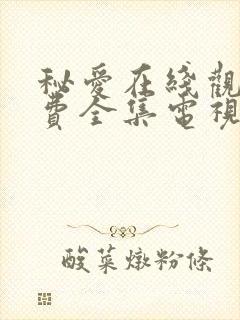 秘愛在綫觀
費全集電視
酸菜燉粉條